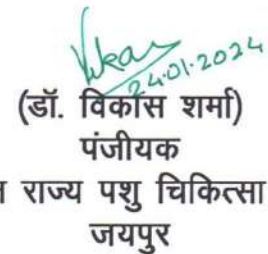 Vikas
24.01.2024
(डॉ. विकास शर्मा)
पंजीयक
राज्य पशु चिकित्सा
जयपुर